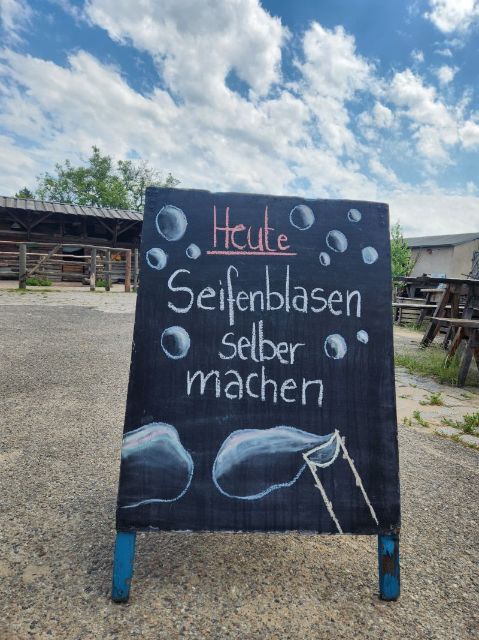 Heute
Seifenblasen
selber
machen